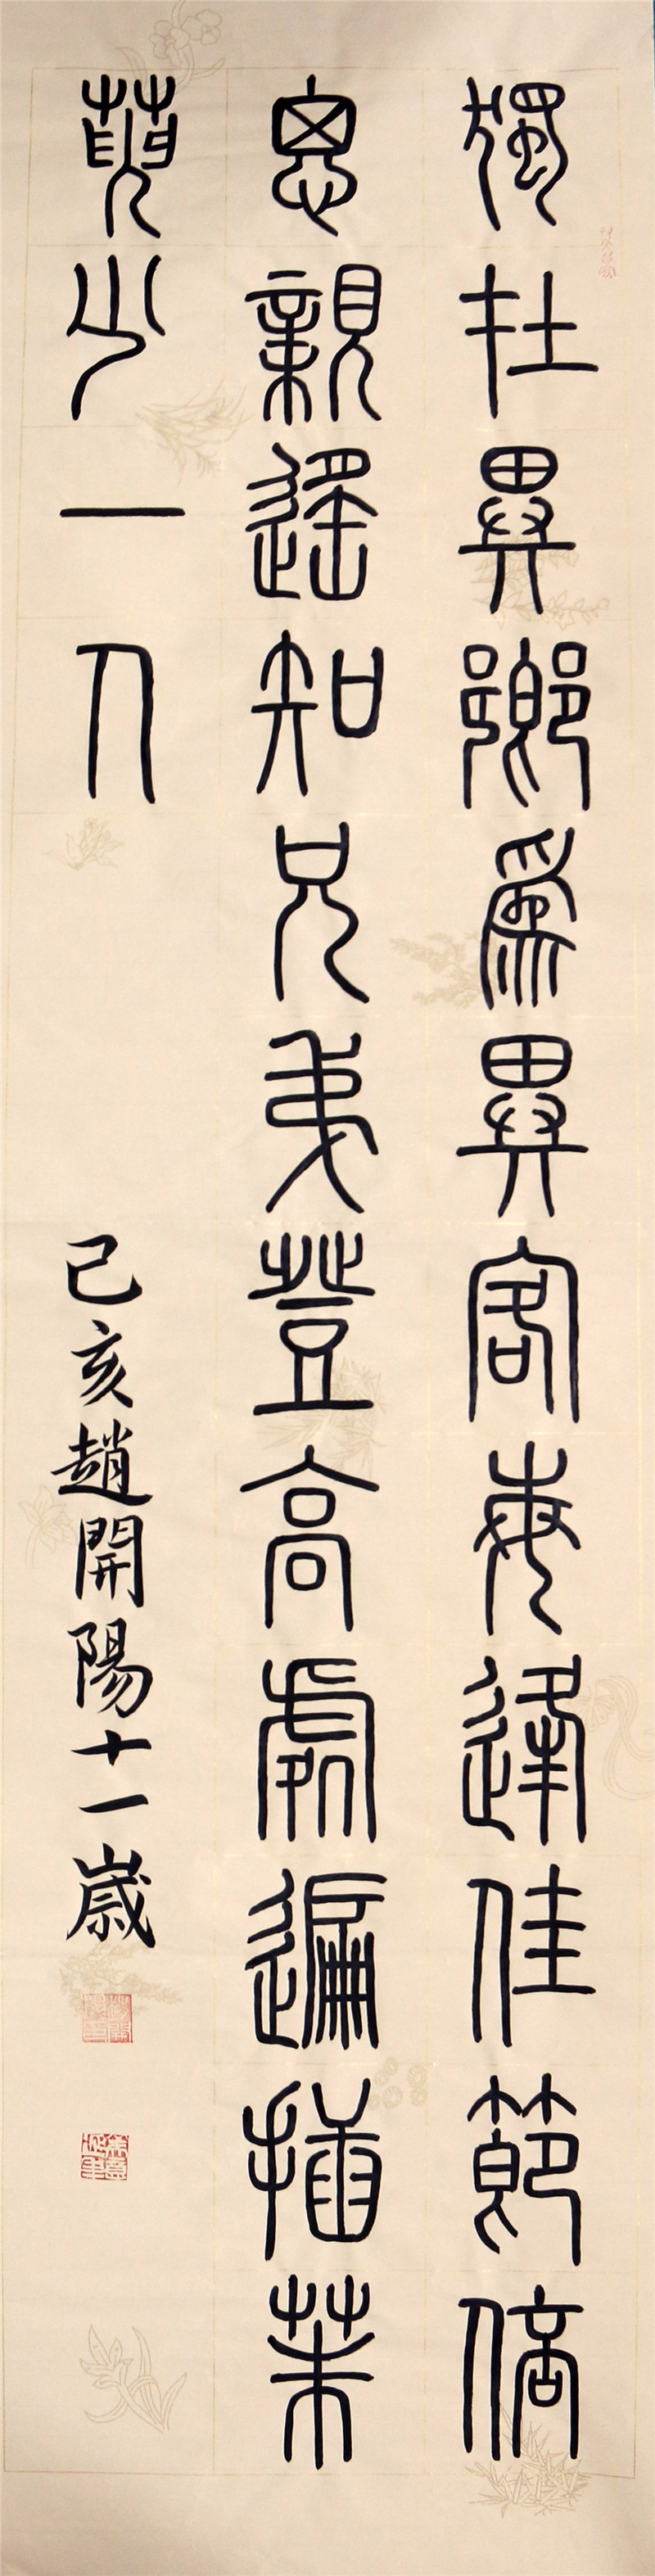 獨在異鄉爲異客每逢佳節倍
思親遥知兄弟登高處遍插茱
萸少一人
己亥趙開陽十一歲